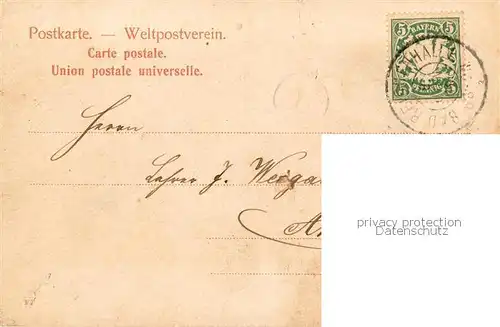 Postkarte. — Weltpostverein.
Carte postale.
Union postale universelle.
5 BAYERN 5
5 PFENNIG 5
Herrn
Lehrer J.
privacy protection
Datenschutz